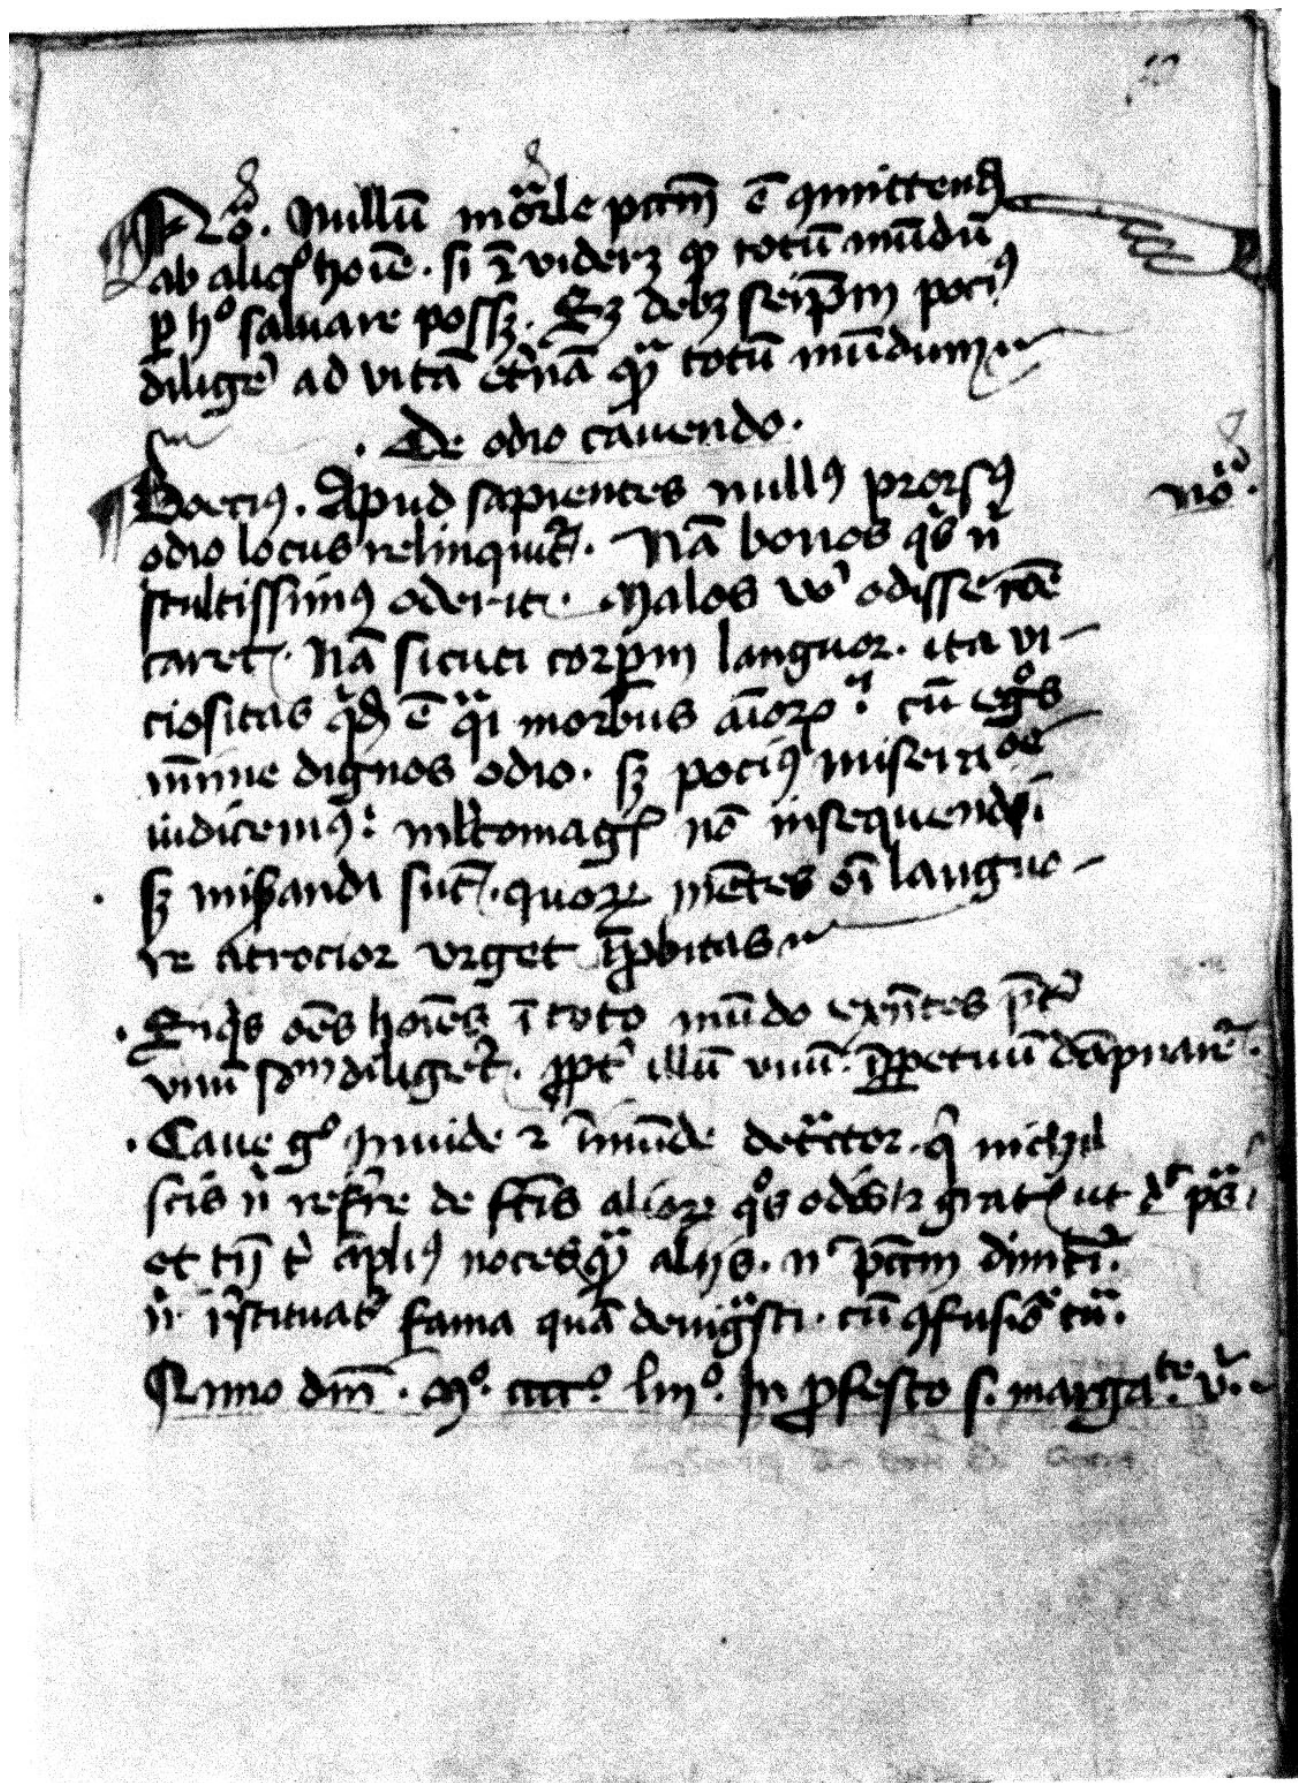 No. Nullū mor̄le pctm̄ ē ꝯmittend
ab aliqº hoīe. si ⁊ viderꝫ ꝙ totū mūdū
ꝑ hº saluare possꝫ. debꝫ seip̄m pociꝰ
diligē ad vitā et̄nā totū mūdum
. De odio cauendo.
Boeciꝰ. Apud sapientes nullꝰ prorsꝰ
nō.
odio locus relinquit᷑. Nā bonos qͥs nͥ
stultissimꝰ oderit. Malos odisse rōe
caret. Nā sicuti corpꝝ languor. ita vi-
ciositas qͥdā ē qᷓi morbus aīoꝝ. cū egºs
mīme dignos odio. sꝫ pociꝰ miseri
iudicemꝰ: mltomagꝭ nō insequendi
sꝫ misandi sūt. quoꝝ mētes oī languo-
re atrocior vrget īꝓbitas
oēs hoīes ī toto mūdo exn̄tes p̄t̓
vnū diliget᷑. ꝓpt̓ illū vnū. īꝑpetuū dāpnaret᷑.
. Caue gº Inuide ⁊ īmūde detᷓctor. qͥ nichil
scis nͥ refr̄e de fc̄is alioꝝ qºs gratꝭ ut pˢ
et tn̄ tͥ āpliꝰ noces qᷓ alijs. nͨ pctm̄ dimīt̓.
nͥ rͤstituat᷑ fama quā denigᷓsti. cū ꝯfusiōe tuᷓ.
Anno dn̄i. Mº. ccccº. liiiº. In ꝓfesto s. margaᵗᵉ. vͥ.